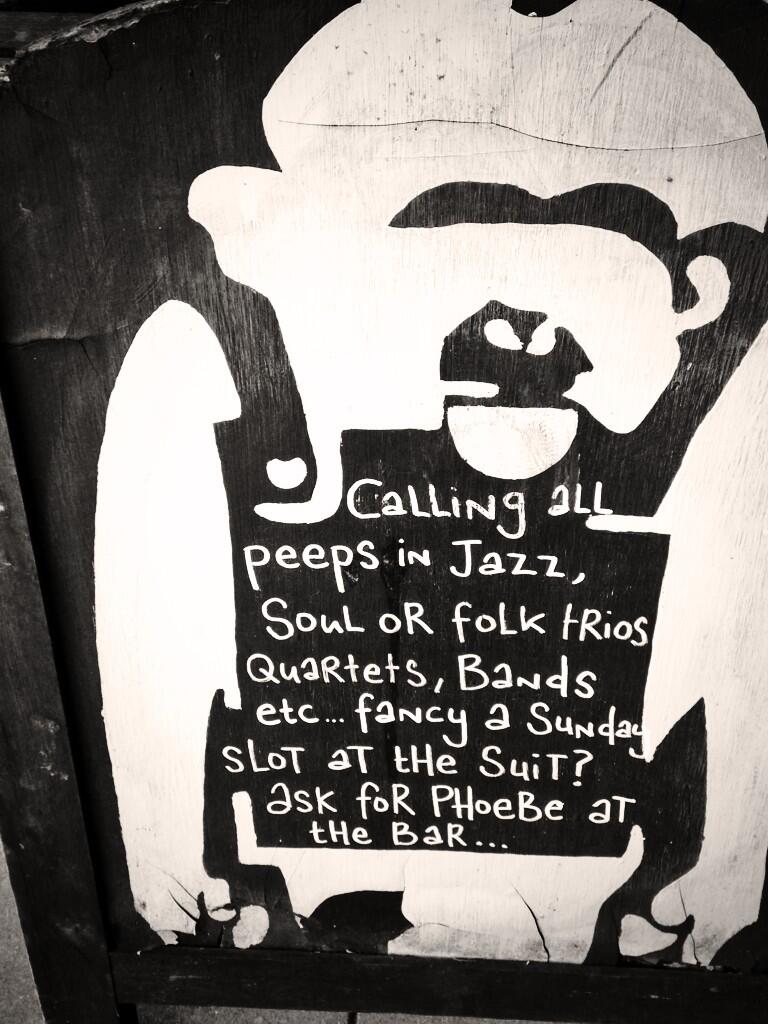 Calling all
peeps in Jazz,
Soul or folk trios
Quartets, Bands
etc... fancy a Sunday
slot at the Suit?
ask for Phoebe at
the Bar...